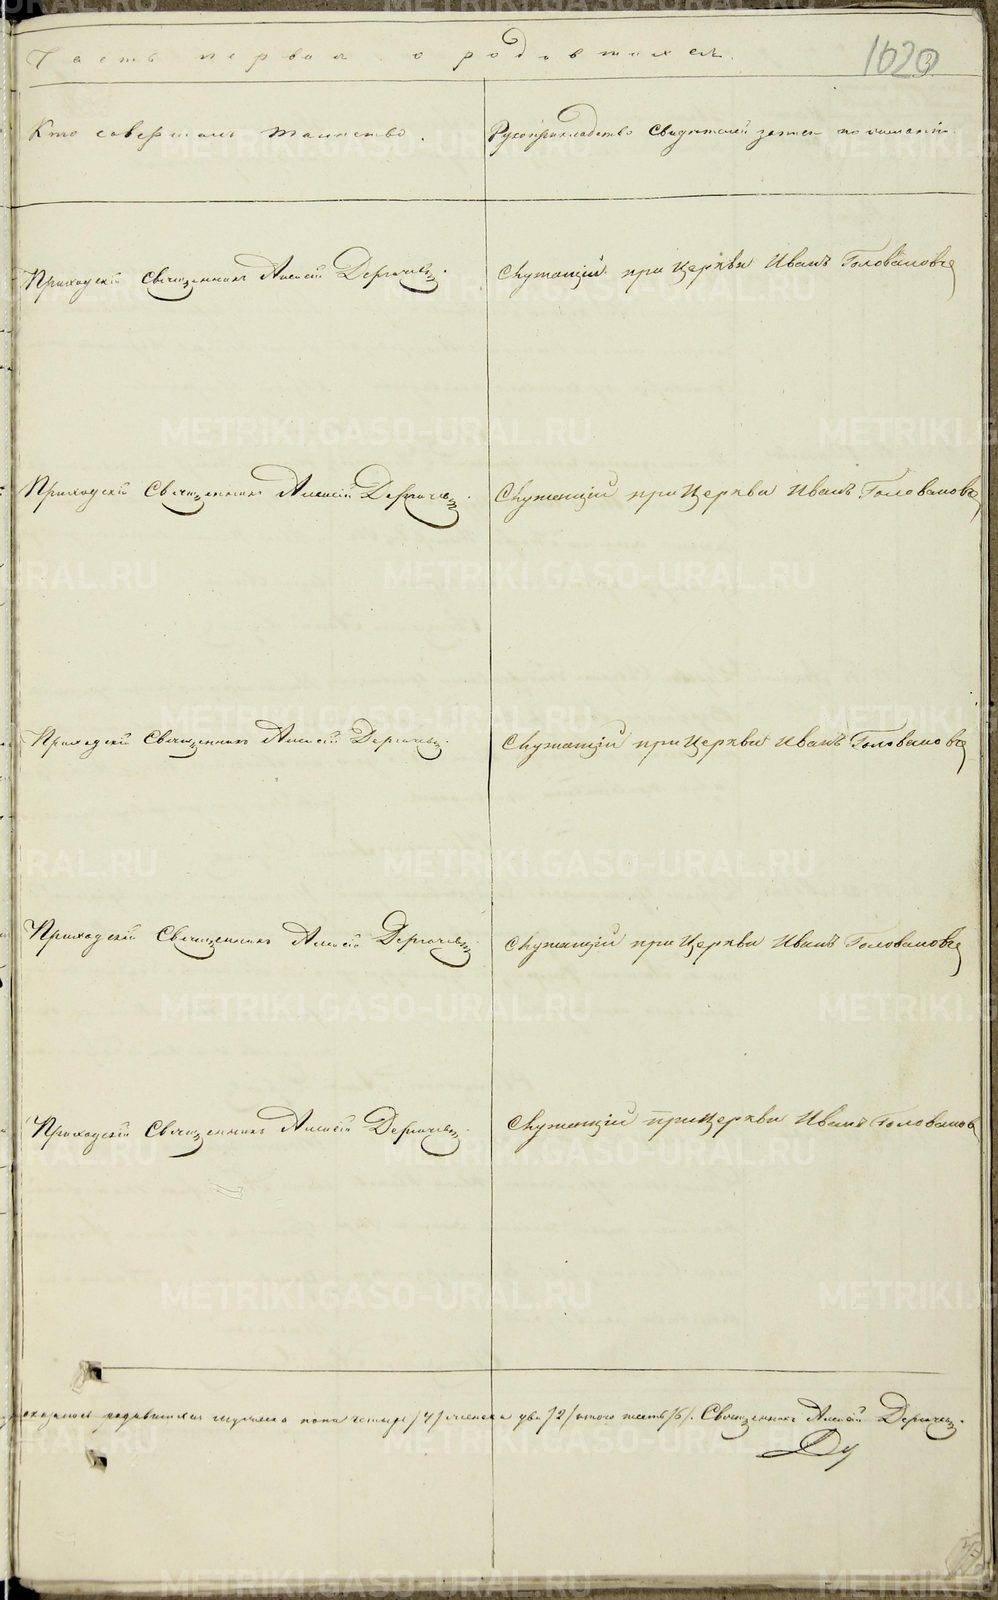 Часть первая о родившихся.
1620
Кто совершалъ таинство.
Рукоприкладство свидетелей записи по желанію.
Приходскій Священникъ Алексей Дергачевъ.
Служащій при Церкви Иванъ Головановъ
Приходскій Священникъ Алексей Дергачевъ.
Служащій при Церкви Иванъ Головановъ
Приходскій Священникъ Алексей Дергачевъ.
Служащій при Церкви Иванъ Головановъ
Приходскій Священникъ Алексей Дергачевъ.
Служащій при Церкви Иванъ Головановъ
Приходскій Священникъ Алексей Дергачевъ.
Служащій при Церкви Иванъ Головановъ
родившихся мужеска пола четыре /4/ женска два /2/ итого шесть /6/. Священникъ Алексей Дергачевъ.
METRIKI.GASO-URAL.RU